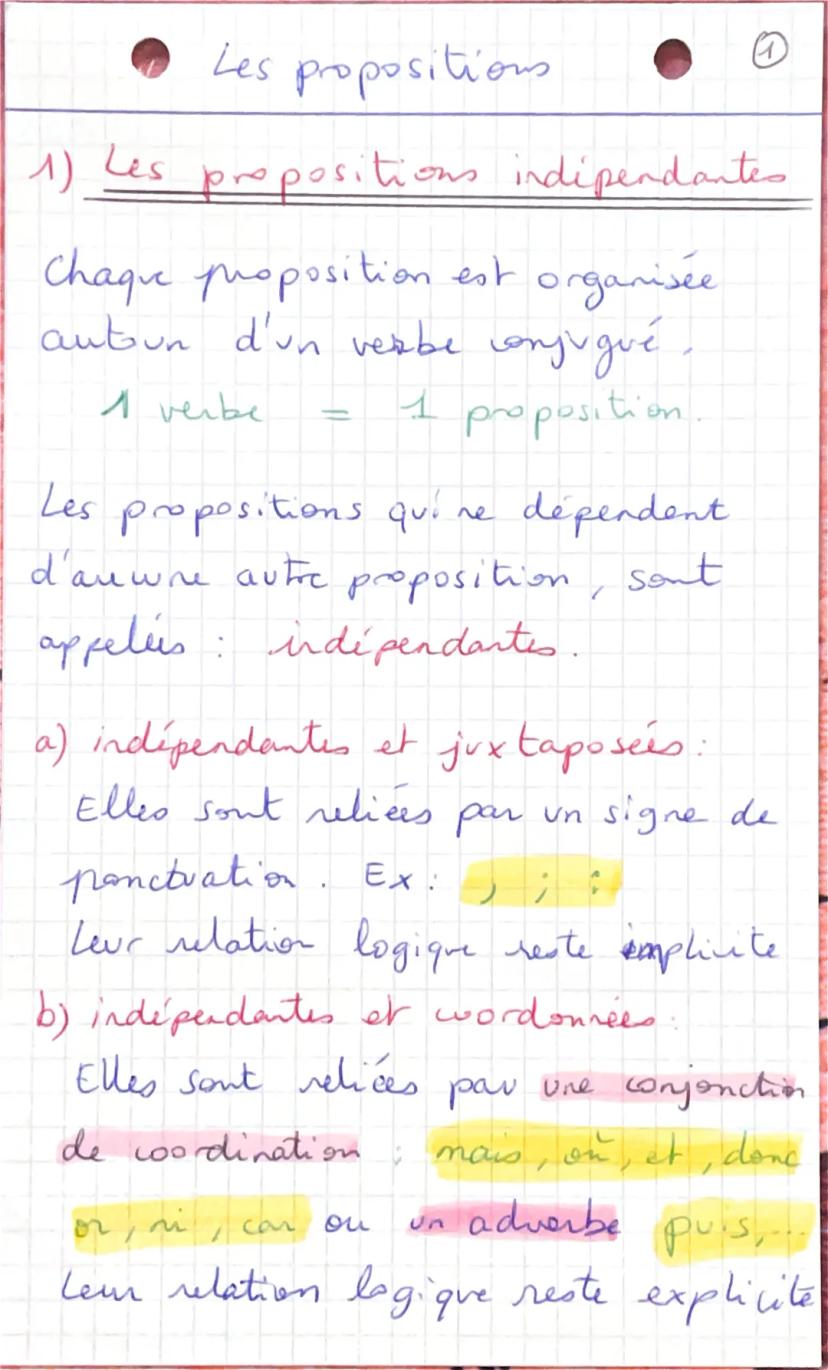 Les propositions
1
1) Les propositions indépendantes
Chaque proposition est organisée
autour d'un verbe conjugué.
1 verbe = 1 proposition.
Les propositions qui ne dépendent
d'aucune autre proposition, sont
appelées : indépendantes.
a) indépendantes et juxtaposées :
Elles sont reliées par un signe de
ponctuation. Ex : , ; :
Leur relation logique reste implicite
b) indépendantes et coordonnées :
Elles sont reliées par une conjonction
de coordination : mais, où, et, donc
or, ni, car ou un adverbe puis,...
Leur relation logique reste explicite